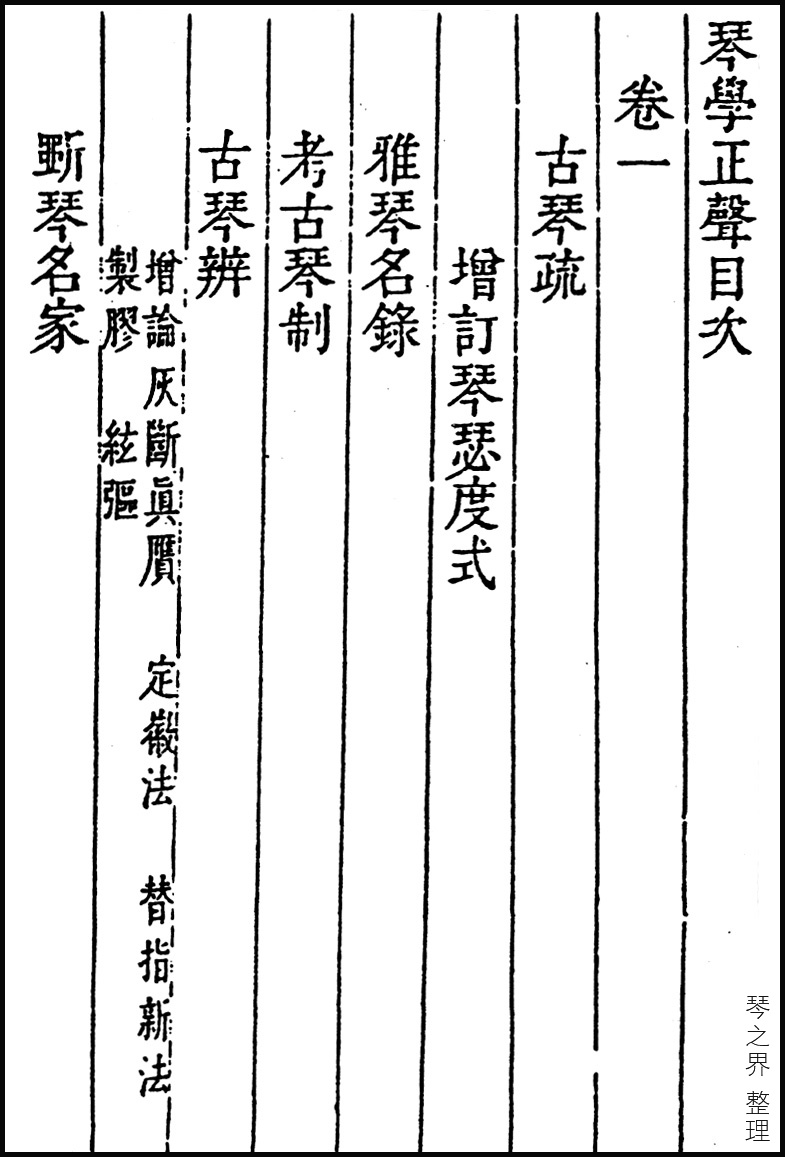 琴學正聲目次
卷一
古琴疏
增訂琴瑟度式
雅琴名錄
考古琴制
古琴辨
增論灰斷眞贋 定徽法 替指新法
製膠 絃
斲琴名家
琴之界 整理